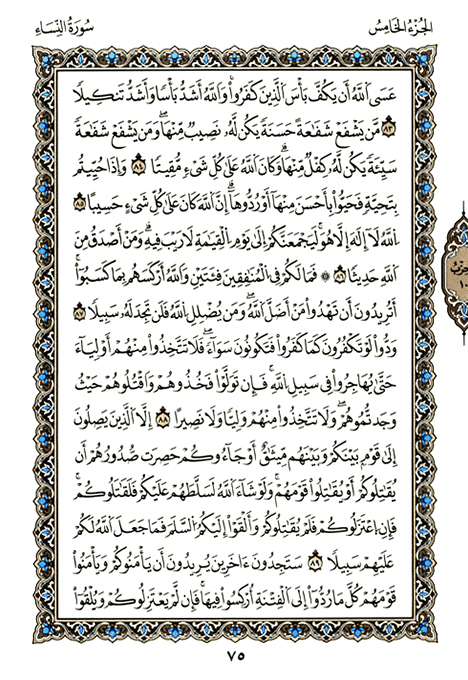 الجزء الخامس
سورة النساء
عَسَى ٱللَّهُ أَن يَكُفَّ بَأْسَ ٱلَّذِينَ كَفَرُوا۟ۚ وَٱللَّهُ أَشَدُّ بَأْسًا وَأَشَدُّ تَنكِيلًا
٨٣ مَّن يَشْفَعْ شَفَٰعَةً حَسَنَةً يَكُن لَّهُۥ نَصِيبٌ مِّنْهَاۖ وَمَن يَشْفَعْ شَفَٰعَةً
سَيِّئَةً يَكُن لَّهُۥ كِفْلٌ مِّنْهَاۗ وَكَانَ ٱللَّهُ عَلَىٰ كُلِّ شَىْءٍ مُّقِيتًا ٨٤ وَإِذَا حُيِّيتُم
بِتَحِيَّةٍ فَحَيُّوا۟ بِأَحْسَنَ مِنْهَآ أَوْ رُدُّوهَآۗ إِنَّ ٱللَّهَ كَانَ عَلَىٰ كُلِّ شَىْءٍ حَسِيبًا ٨٥
ٱللَّهُ لَآ إِلَٰهَ إِلَّا هُوَۚ لَيَجْمَعَنَّكُمْ إِلَىٰ يَوْمِ ٱلْقِيَٰمَةِ لَا رَيْبَ فِيهِۗ وَمَنْ أَصْدَقُ مِنَ
ٱللَّهِ حَدِيثًا ٨٦ ۞ فَمَا لَكُمْ فِى ٱلْمُنَٰفِقِينَ فِئَتَيْنِ وَٱللَّهُ أَرْكَسَهُم بِمَا كَسَبُوٓا۟ۚ
أَتُرِيدُونَ أَن تَهْدُوا۟ مَنْ أَضَلَّ ٱللَّهُۖ وَمَن يُضْلِلِ ٱللَّهُ فَلَن تَجِدَ لَهُۥ سَبِيلًا ٨٧
وَدُّوا۟ لَوْ تَكْفُرُونَ كَمَا كَفَرُوا۟ فَتَكُونُونَ سَوَآءًۖ فَلَا تَتَّخِذُوا۟ مِنْهُمْ أَوْلِيَآءَ
حَتَّىٰ يُهَاجِرُوا۟ فِى سَبِيلِ ٱللَّهِۚ فَإِن تَوَلَّوْا۟ فَخُذُوهُمْ وَٱقْتُلُوهُمْ حَيْثُ
وَجَدتُّمُوهُمْۖ وَلَا تَتَّخِذُوا۟ مِنْهُمْ وَلِيًّا وَلَا نَصِيرًا ٨٨ إِلَّا ٱلَّذِينَ يَصِلُونَ
إِلَىٰ قَوْمٍۭ بَيْنَكُمْ وَبَيْنَهُم مِّيثَٰقٌ أَوْ جَآءُوكُمْ حَصِرَتْ صُدُورُهُمْ أَن
يُقَٰتِلُوكُمْ أَوْ يُقَٰتِلُوا۟ قَوْمَهُمْۚ وَلَوْ شَآءَ ٱللَّهُ لَسَلَّطَهُمْ عَلَيْكُمْ فَلَقَٰتَلُوكُمْۚ
فَإِنِ ٱعْتَزَلُوكُمْ فَلَمْ يُقَٰتِلُوكُمْ وَأَلْقَوْا۟ إِلَيْكُمُ ٱلسَّلَمَ فَمَا جَعَلَ ٱللَّهُ لَكُمْ
عَلَيْهِمْ سَبِيلًا ٨٩ سَتَجِدُونَ ءَاخَرِينَ يُرِيدُونَ أَن يَأْمَنُوكُمْ وَيَأْمَنُوا۟
قَوْمَهُمْ كُلَّ مَا رُدُّوٓا۟ إِلَى ٱلْفِتْنَةِ أُرْكِسُوا۟ فِيهَاۚ فَإِن لَّمْ يَعْتَزِلُوكُمْ وَيُلْقُوٓا۟
٧٥